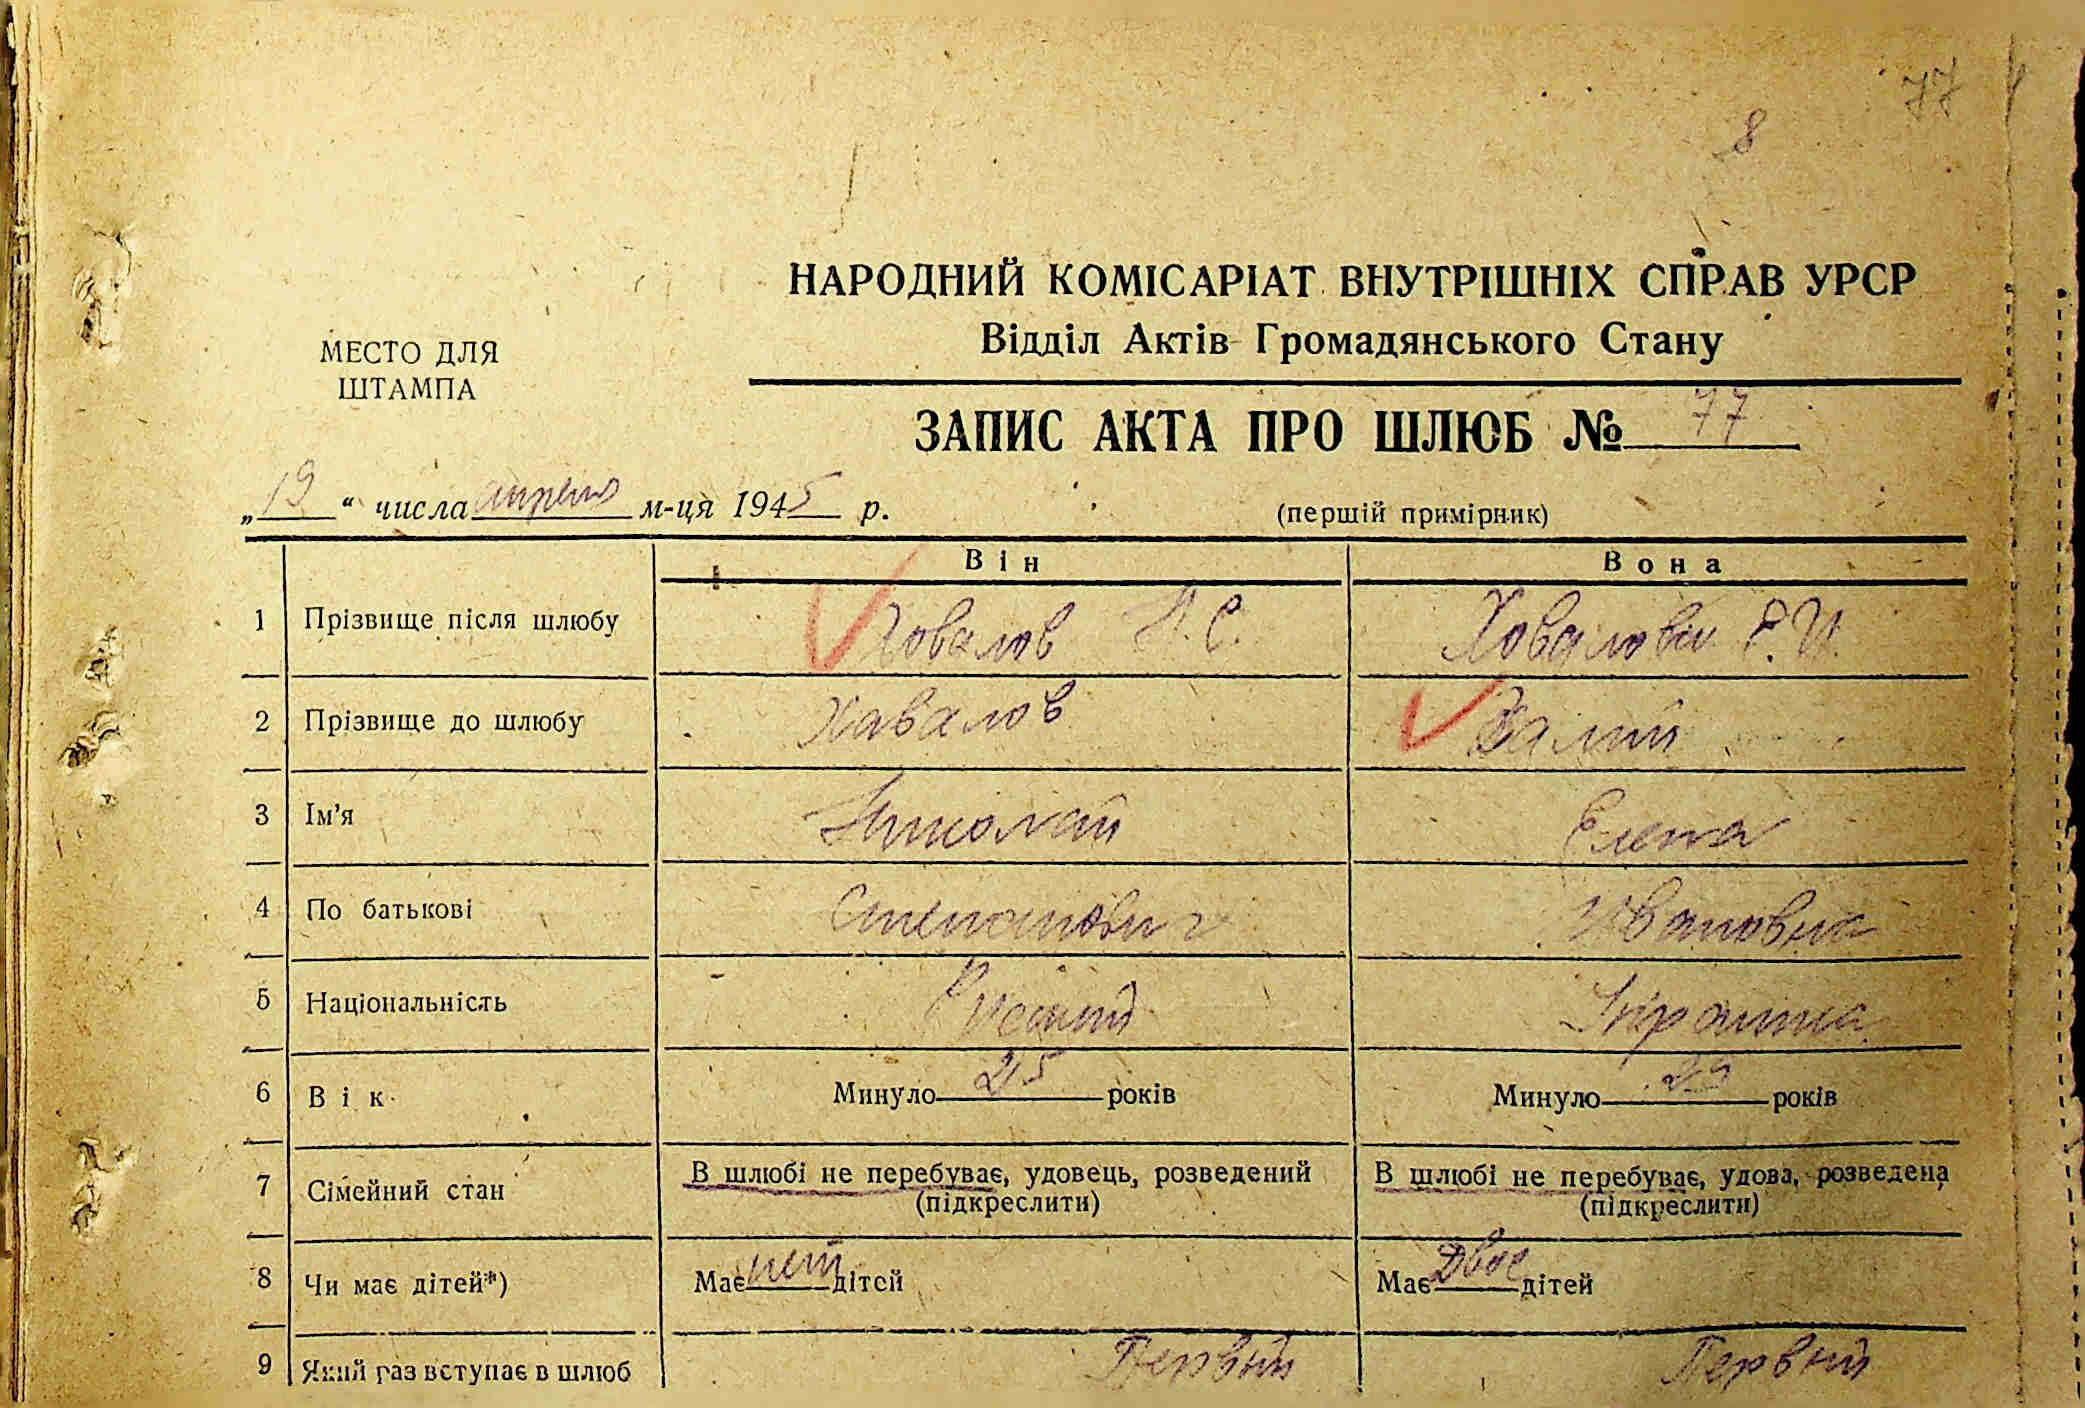 77
8
НАРОДНИЙ КОМІСАРІАТ ВНУТРІШНІХ СПРАВ УРСР
Відділ Актів Громадянського Стану
МЕСТО ДЛЯ
ШТАМПА
ЗАПИС АКТА ПРО ШЛЮБ № 77
„19“ числа апреля м-ця 1945 р.
(перший примірник)
Він Вона
1 Прізвище після шлюбу Ховалов Н. С. Ховалова Е. И.
2 Прізвище до шлюбу Хавалов
3 Ім'я Николай Елена
4 По батькові Степанович Ивановна
5 Національність Русский Украинка
6 Вік Минуло 25 років Минуло 29 років
7 Сімейний стан В шлюбі не перебуває, удовець, розведений В шлюбі не перебуває, удова, розведена
(підкреслити) (підкреслити)
8 Чи має дітей*) Має нет дітей Має Двое дітей
9 Який раз вступає в шлюб Первый Первый